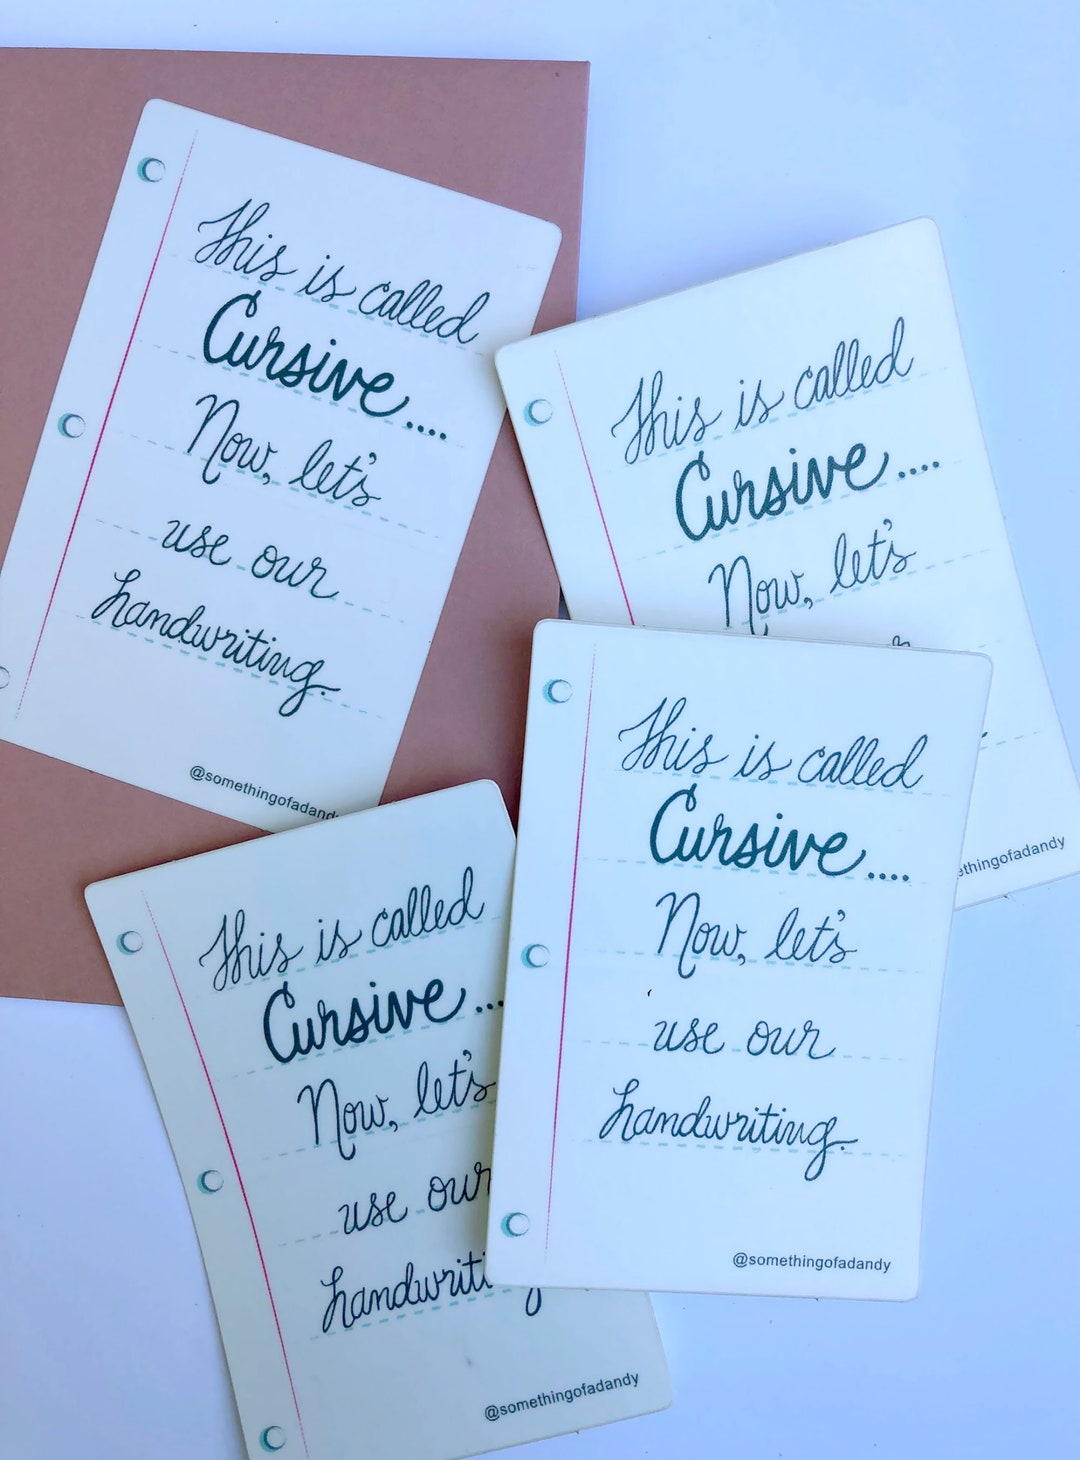 This is called
Cursive....
Now, let's
use our
handwriting.
@somethingofadandy
This is called
Cursive....
Now, let's
This is called
Cursive....
Now, let's
use our
handwriting.
@somethingofadandy
This is called
Cursive...
Now, let's
use our
@somethingofadandy